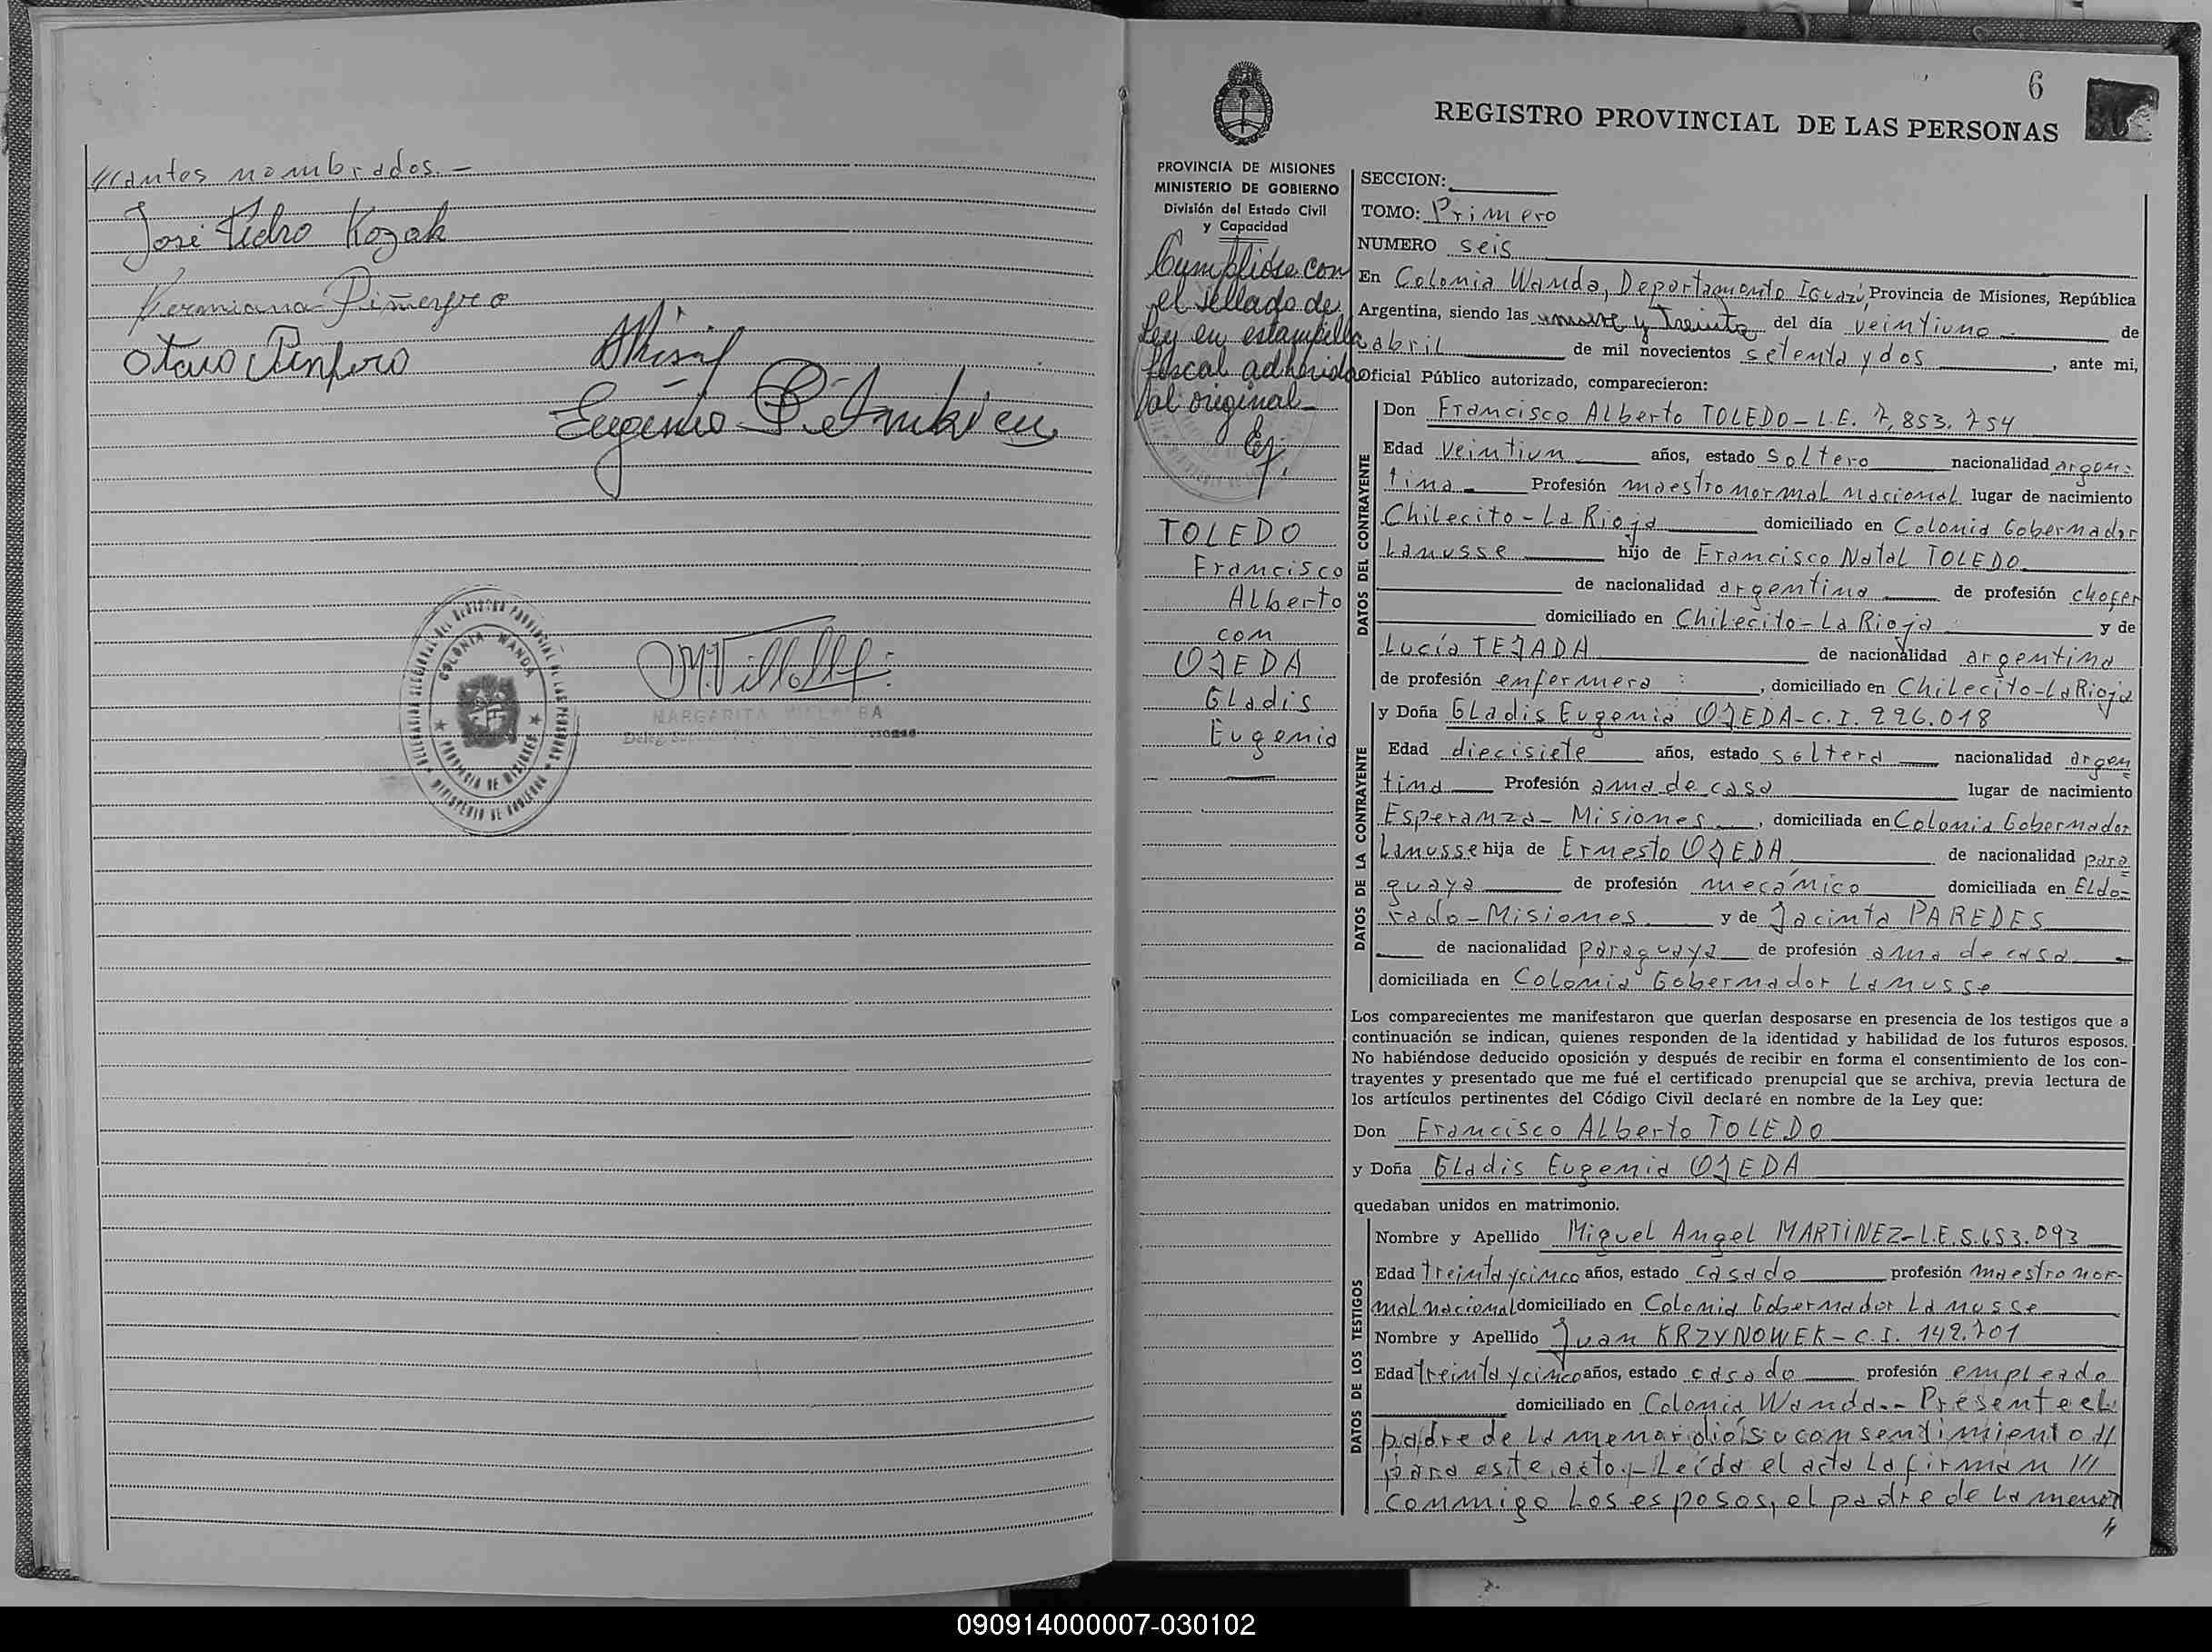 //antes nombrados.-
José Pedro Kozak
Otavo
Eugenio
COLONIA WANDA
PROVINCIA DE MISIONES
MINISTERIO DE GOBIERNO
M. Villalba
MARGARITA VILLALBA
6
REGISTRO PROVINCIAL DE LAS PERSONAS
PROVINCIA DE MISIONES
MINISTERIO DE GOBIERNO
División del Estado Civil
y Capacidad
Cumplióse con
el sellado de
Ley en estampilla
fiscal adherida
al original-
TOLEDO
Francisco
Alberto
con
OJEDA
Gladis
Eugenia
SECCION:
TOMO: Primero
NUMERO seis
En Colonia Wanda, Departamento Iguazú, Provincia de Misiones, República
Argentina, siendo las nueve y treinta del día veintiuno de
abril de mil novecientos setenta y dos, ante mi,
Oficial Público autorizado, comparecieron:
DATOS DEL CONTRAYENTE
Don Francisco Alberto TOLEDO - L.E. 7.853.754
Edad veintiun años, estado soltero nacionalidad argen=
tina Profesión maestro normal nacional lugar de nacimiento
Chilecito - La Rioja domiciliado en Colonia Gobernador
Lanusse hijo de Francisco Natal TOLEDO
de nacionalidad argentina de profesión chofer
domiciliado en Chilecito - La Rioja y de
Lucía TEJADA de nacionalidad argentina
de profesión enfermera, domiciliado en Chilecito - La Rioja
DATOS DE LA CONTRAYENTE
y Doña Gladis Eugenia OJEDA - C.I. 226.018
Edad diecisiete años, estado soltera nacionalidad argen=
tina Profesión ama de casa lugar de nacimiento
Esperanza - Misiones, domiciliada en Colonia Gobernador
Lanusse hija de Ernesto OJEDA de nacionalidad para=
guaya de profesión mecánico domiciliada en Eldo=
rado - Misiones y de Jacinta PAREDES
de nacionalidad paraguaya de profesión ama de casa
domiciliada en Colonia Gobernador Lanusse
Los comparecientes me manifestaron que querían desposarse en presencia de los testigos que a
continuación se indican, quienes responden de la identidad y habilidad de los futuros esposos.
No habiéndose deducido oposición y después de recibir en forma el consentimiento de los con-
trayentes y presentado que me fué el certificado prenupcial que se archiva, previa lectura de
los artículos pertinentes del Código Civil declaré en nombre de la Ley que:
Don Francisco Alberto TOLEDO
y Doña Gladis Eugenia OJEDA
quedaban unidos en matrimonio.
DATOS DE LOS TESTIGOS
Nombre y Apellido Miguel Angel MARTINEZ - L.E. 5.653.093
Edad treinta y cinco años, estado casado profesión maestro nor-
mal nacional domiciliado en Colonia Gobernador Lanusse
Nombre y Apellido Juan KRZYNOWEK - C.I. 149.701
Edad treinta y cinco años, estado casado profesión empleado
domiciliado en Colonia Wanda.- Presente el
padre de la menor dió su consentimiento //
para este acto.- Leída el acta la firman ///
conmigo los esposos, el padre de la menor
090914000007-030102